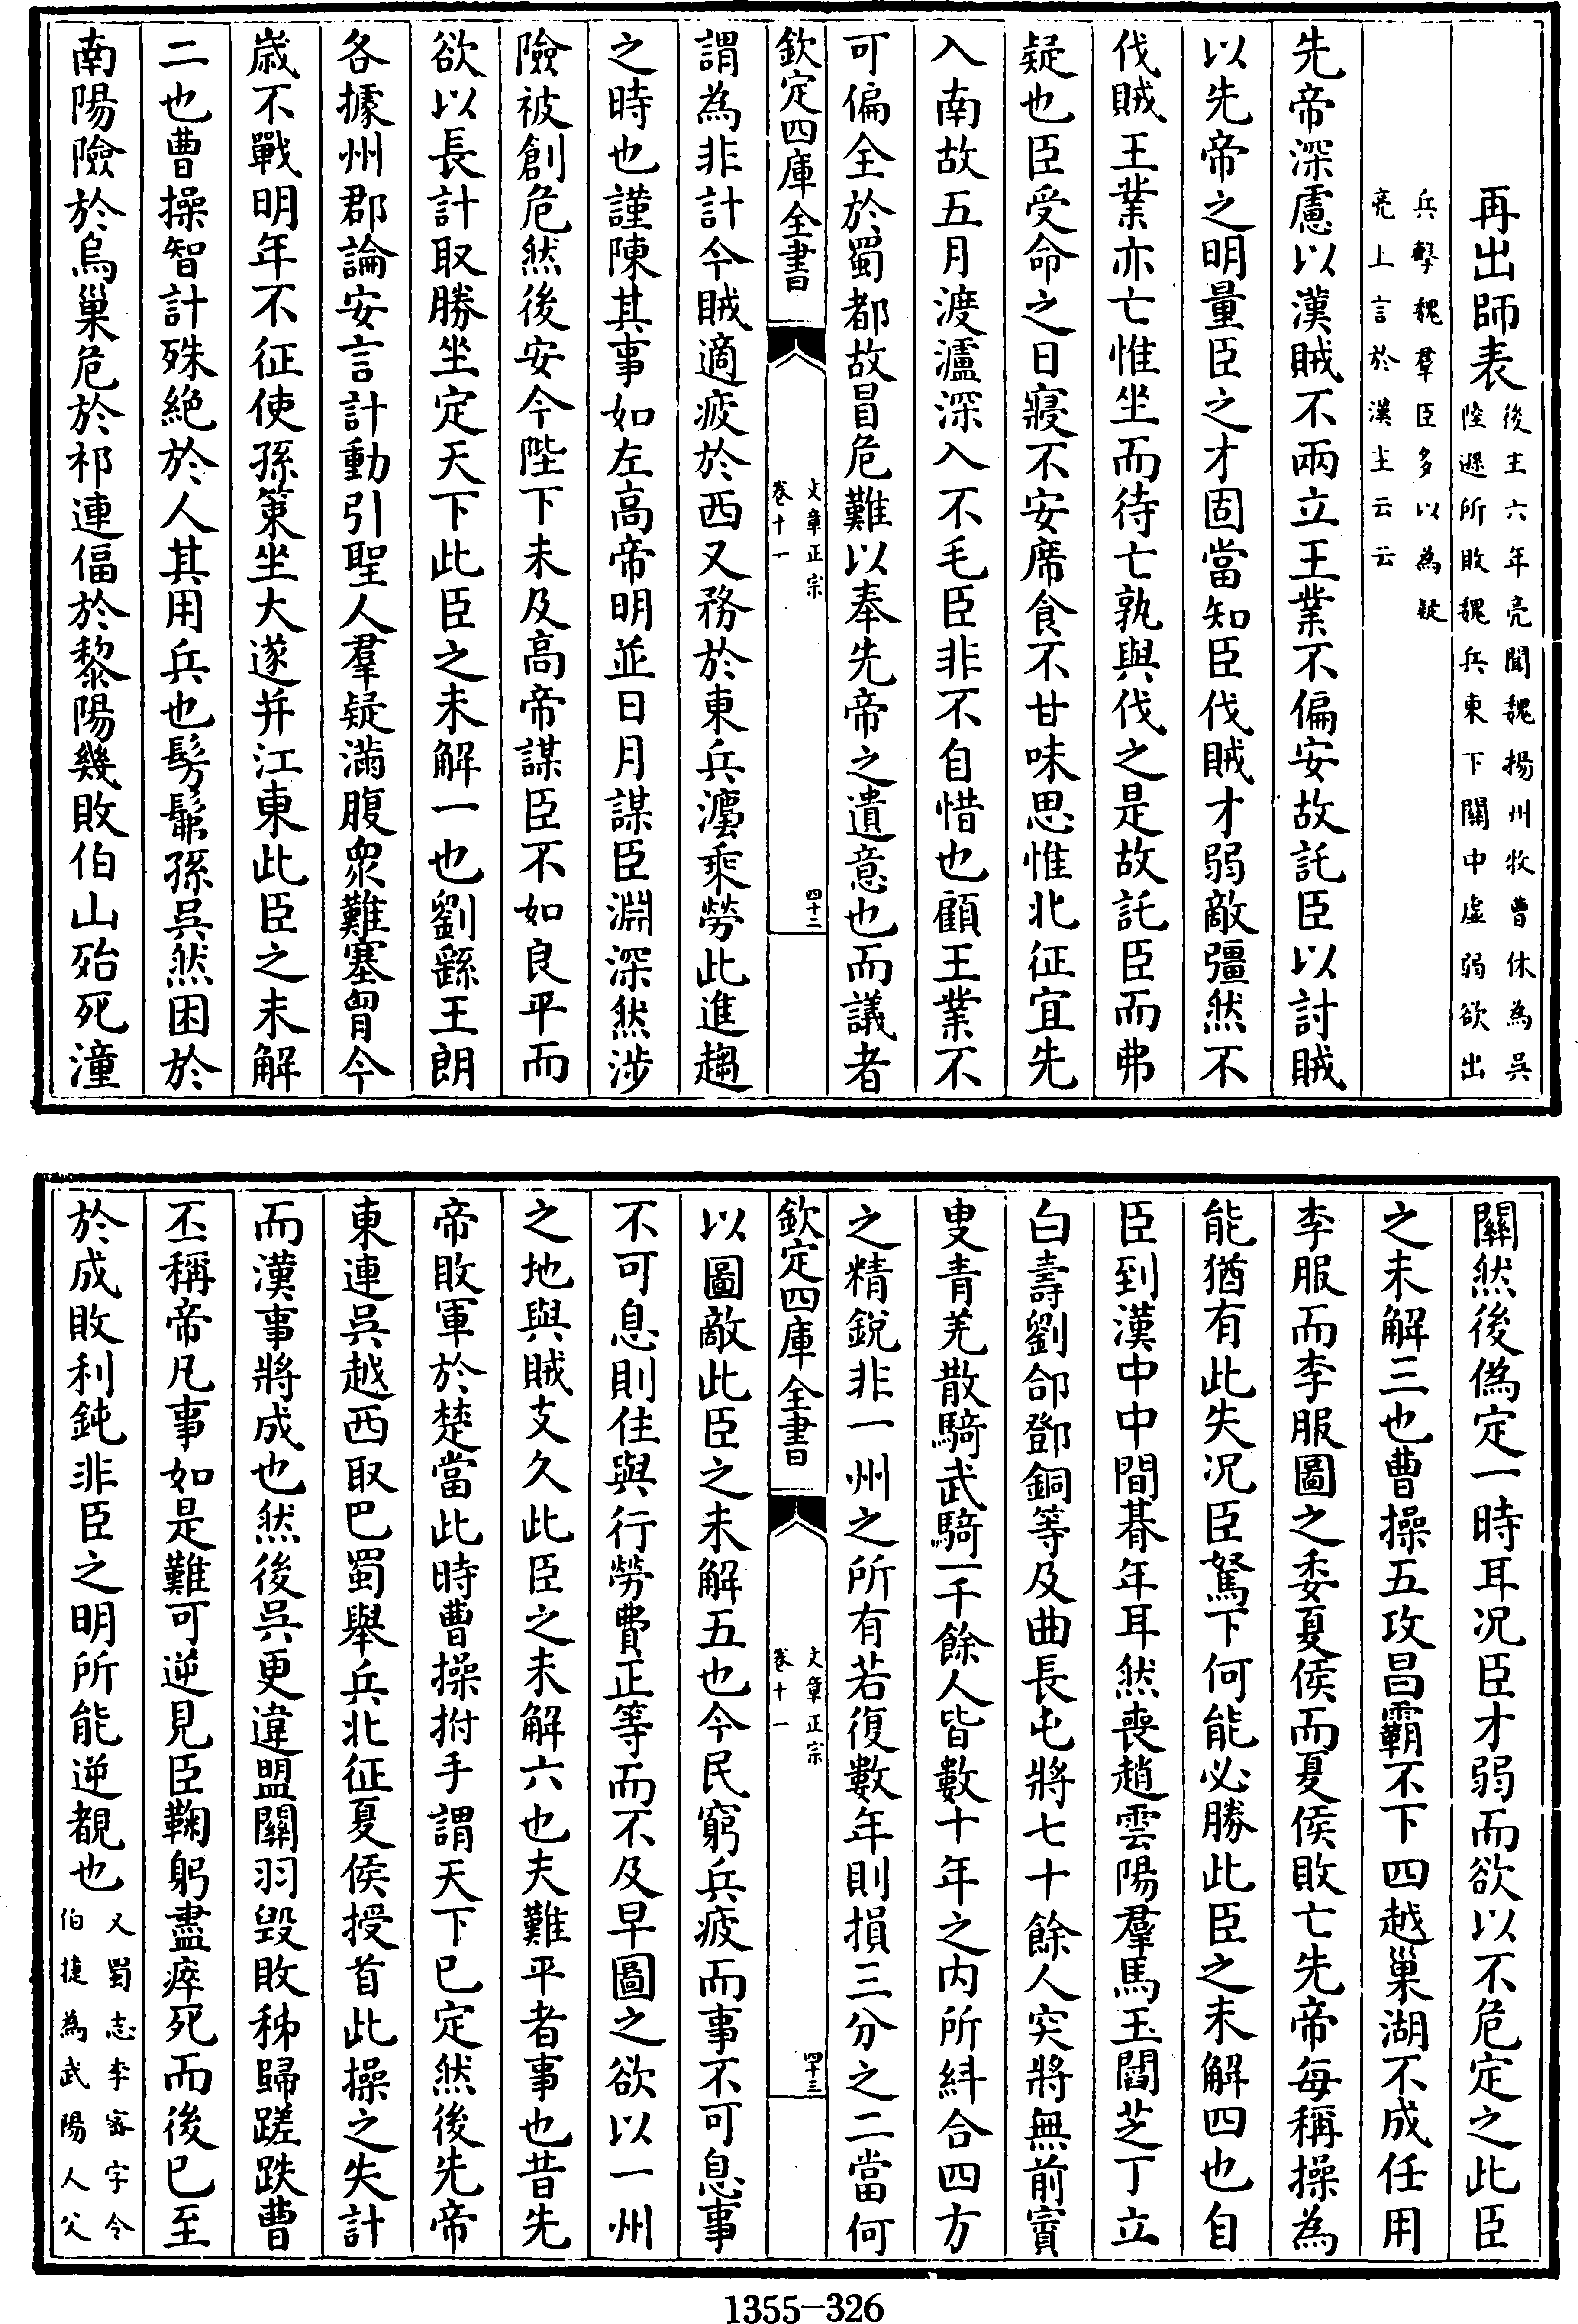 再出師表後主六年亮聞魏揚州牧曹休為吳陸遜所敗魏兵東下關中虛弱欲出
兵擊魏羣臣多以為疑亮上言於漢主云云
先帝深慮以漢賊不兩立王業不偏安故託臣以討賊
以先帝之明量臣之才固當知臣伐賊才弱敵彊然不
伐賊王業亦亡惟坐而待亡孰與伐之是故託臣而弗
疑也臣受命之日寢不安席食不甘味思惟北征宜先
入南故五月渡瀘深入不毛臣非不自惜也顧王業不
可偏全於蜀都故冒危難以奉先帝之遺意也而議者
欽定四庫全書 文章正宗卷十一 四十二
謂為非計今賊適疲於西又務於東兵灋乘勞此進趨
之時也謹陳其事如左高帝明並日月謀臣淵深然涉
險被創危然後安今陛下未及高帝謀臣不如良平而
欲以長計取勝坐定天下此臣之未解一也劉繇王朗
各據州郡論安言計動引聖人羣疑滿腹衆難塞胷今
歳不戰明年不征使孫策坐大遂并江東此臣之未解
二也曹操智計殊絶於人其用兵也髣髴孫吳然困於
南陽險於烏巢危於祁連偪於黎陽幾敗伯山殆死潼
關然後偽定一時耳况臣才弱而欲以不危定之此臣
之未解三也曹操五攻昌霸不下四越巢湖不成任用
李服而李服圖之委夏侯而夏侯敗亡先帝每稱操為
能猶有此失况臣駑下何能必勝此臣之未解四也自
臣到漢中中間朞年耳然喪趙雲陽羣馬玉閻芝丁立
白壽劉郃鄧銅等及曲長屯將七十餘人突將無前賨
叟青羌散騎武騎一千餘人皆數十年之内所糾合四方
之精鋭非一州之所有若復數年則損三分之二當何
欽定四庫全書 文章正宗卷十一 四十三
以圖敵此臣之未解五也今民窮兵疲而事不可息事
不可息則住與行勞費正等而不及早圖之欲以一州
之地與賊支久此臣之未解六也夫難平者事也昔先
帝敗軍於楚當此時曹操拊手謂天下已定然後先帝
東連吳越西取巴蜀舉兵北征夏侯授首此操之失計
而漢事將成也然後吳更違盟關羽毁敗秭歸蹉跌曹
丕稱帝凡事如是難可逆見臣鞠躬盡瘁死而後已至
於成敗利鈍非臣之明所能逆覩也又蜀志李宻字令伯捷為武陽人父
1355-326